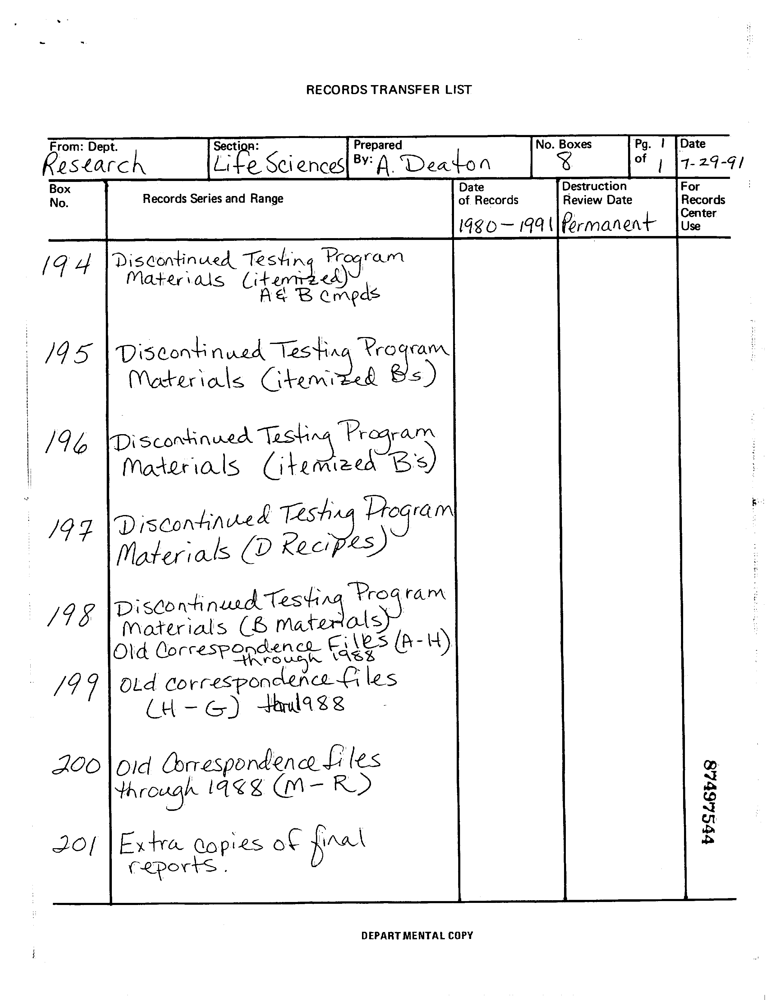 RECORDS TRANSFER LIST
From: Dept. Section: Prepared No. Boxes Pg. 1 Date
Research Life Sciences By: A. Deaton 8 of 1 7-29-91
Box No. Records Series and Range Date of Records Destruction Review Date For Records Center Use
1980-1991 Permanent
194 Discontinued Testing Program
Materials (itemized)
A & B cmpds
195 Discontinued Testing Program
Materials (itemized B's)
196 Discontinued Testing Program
Materials (itemized B's)
197 Discontinued Testing Program
Materials (D Recipes)
198 Discontinued Testing Program
Materials (B Materials)
Old Correspondence Files (A-H)
through 1988
199 Old correspondence files
(H-G) thru 1988
200 Old Correspondence files
through 1988 (M-R)
201 Extra copies of final
reports.
87497544
DEPARTMENTAL COPY